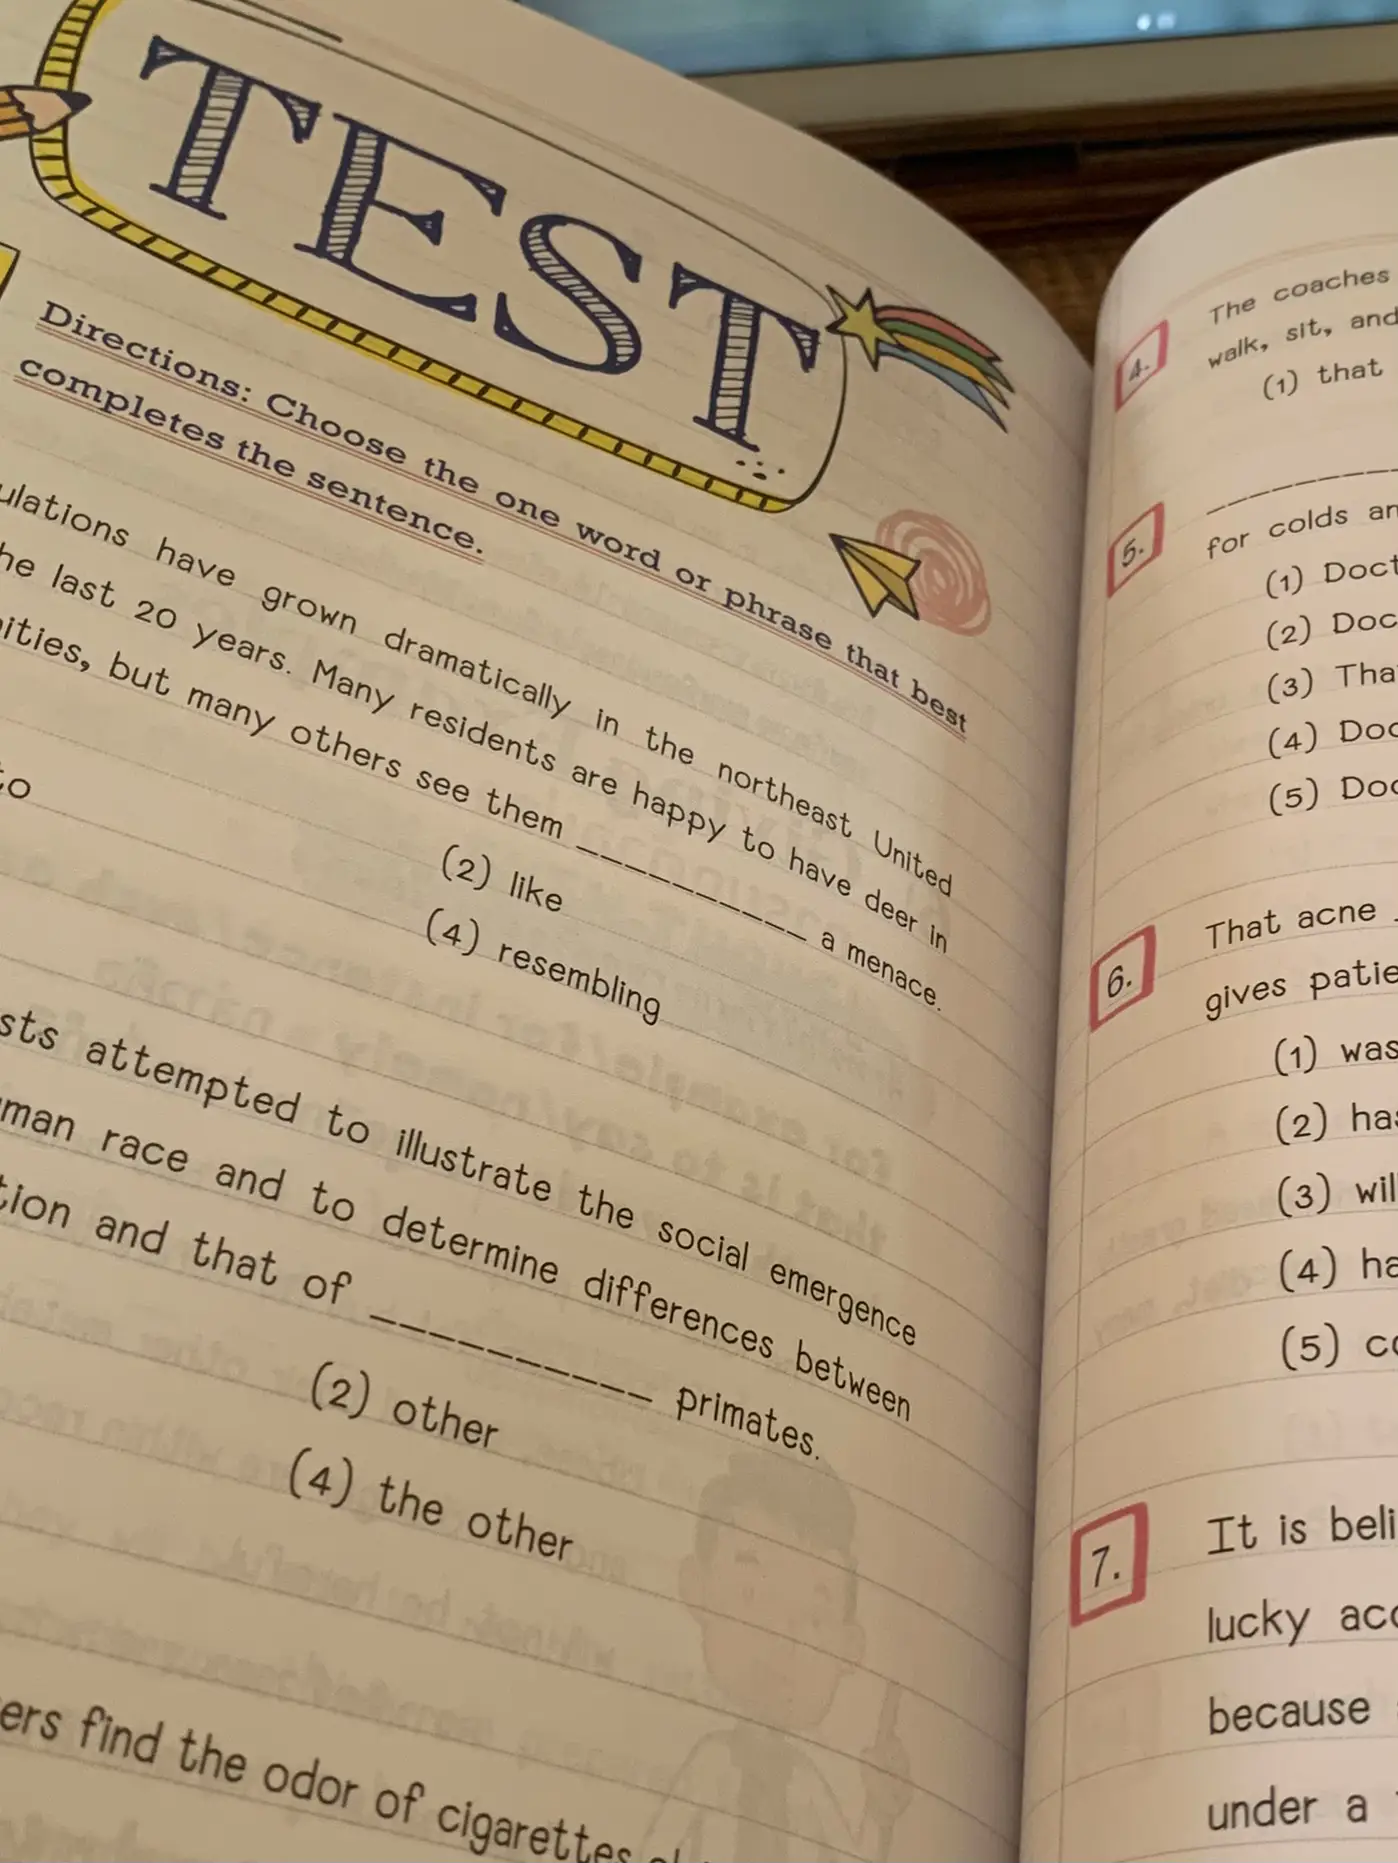 TEST
Directions: Choose the one word or phrase that best
completes the sentence.
ulations have grown dramatically in the northeast United
he last 20 years. Many residents are happy to have deer in
ities, but many others see them __________ a menace.
to
(2) like
(4) resembling
sts attempted to illustrate the social emergence
man race and to determine differences between
tion and that of __________ primates.
(2) other
(4) the other
ers find the odor of cigarettes
4. The coaches
walk, sit, and
(1) that
5. ______
for colds an
(1) Doct
(2) Doc
(3) Tha
(4) Doc
(5) Doc
6. That acne
gives patie
(1) was
(2) has
(3) will
(4) ha
(5) co
7. It is beli
lucky acc
because
under a